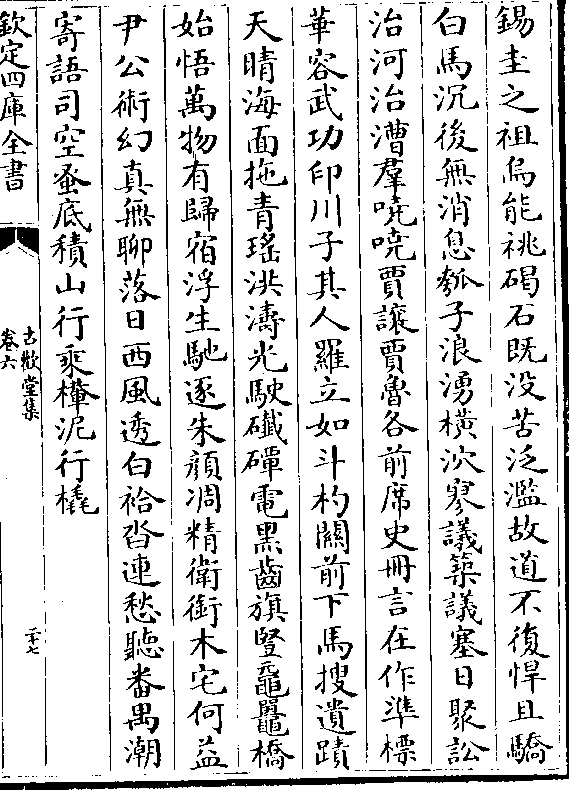 錫圭之祖烏能祧碣石既没苦泛濫故道不復悍且驕
白馬沉後無消息瓠子浪湧橫沴寥議築議塞日聚訟
治河治漕羣哓哓賈讓賈魯各前席史冊言在作準標
華容武功印川子其人羅立如斗杓闗前下馬搜遺蹟
天晴海面拖青瑤洪濤光駛礮磹電黑齒旗豎黿鼉橋
始悟萬物有歸宿浮生馳逐朱顔凋精衛銜木宅何益
尹公術幻真無聊落日西風透白袷沓連愁聽番禺潮
寄語司空蚤底積山行乘樏泥行橇
欽定四庫全書
古歡堂集
卷六
二十七